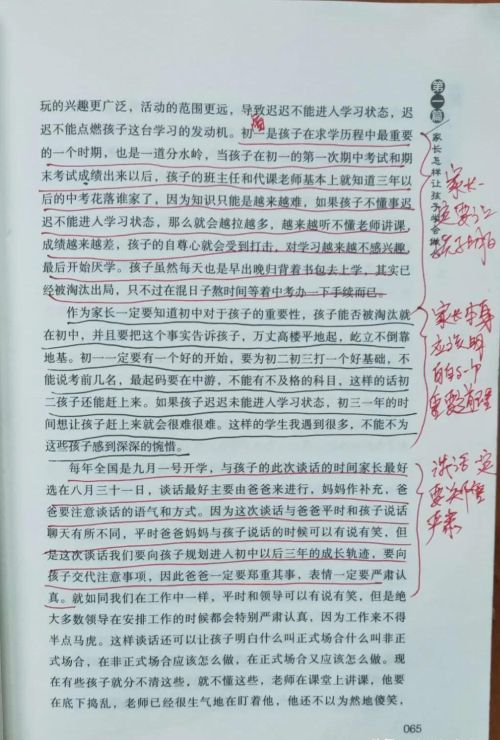 第一篇
家长怎样让孩子学会
玩的兴趣更广泛，活动的范围更远，导致迟迟不能进入学习状态，迟
迟不能点燃孩子这台学习的发动机。初一是孩子在求学历程中最重要
的一个时期，也是一道分水岭，当孩子在初一的第一次期中考试和期
末考试成绩出来以后，孩子的班主任和代课老师基本上就知道三年以
后的中考花落谁家了，因为知识只能是越来越难，如果孩子不懂事迟
迟不能进入学习状态，那么就会越拉越多，越来越听不懂老师讲课，
成绩越来越差，孩子的自尊心就会受到打击，对学习越来越不感兴趣，
最后开始厌学。孩子虽然每天也是早出晚归背着书包去上学，其实已
经被淘汰出局，只不过在混日子熬时间等着中考办一下手续而已。
作为家长一定要知道初中对于孩子的重要性，孩子能否被淘汰就
在初中，并且要把这个事实告诉孩子，万丈高楼平地起，屹立不倒靠
地基。初一一定要有一个好的开始，要为初二初三打一个好基础，不
能说考前几名，最起码要在中游，不能有不及格的科目，这样的话初
二孩子还能赶上来。如果孩子迟迟未能进入学习状态，初三一年的时
间想让孩子赶上来就会很难很难。这样的学生我遇到很多，不能不为
这些孩子感到深深的惋惜。
每年全国是九月一号开学，与孩子的此次谈话的时间家长最好
选在八月三十一日，谈话最好主要由爸爸来进行，妈妈作补充，爸
爸要注意谈话的语气和方式。因为这次谈话与爸爸平时和孩子说话
聊天有所不同，平时爸爸妈妈与孩子说话的时候可以有说有笑，但
是这次谈话我们要向孩子规划进入初中以后三年的成长轨迹，要向
孩子交代注意事项，因此爸爸一定要郑重其事，表情一定要严肃认
真。就如同我们在工作中一样，平时和领导可以有说有笑，但是绝
大多数领导在安排工作的时候都会特别严肃认真，因为工作来不得
半点马虎。这样谈话还可以让孩子明白什么叫正式场合什么叫非正
式场合，在非正式场合应该怎么做，在正式场合又应该怎么做。现
在有些孩子就分不清这些，就不懂这些，老师在课堂上讲课，他要
在底下捣乱，老师已经很生气地在盯着他，他还不以为然地傻笑，
家长一
定要让
孩子
家长
应说明
重要
谈话 定
要
严肃
065